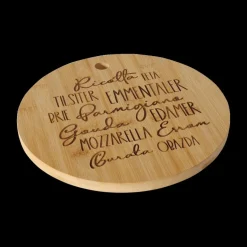 Ricotta FETA
TILSITER EMMENTALER
BRIE Parmigiano
Gouda EDAMER
MOZZARELLA Errom
Burrata OBAZDA